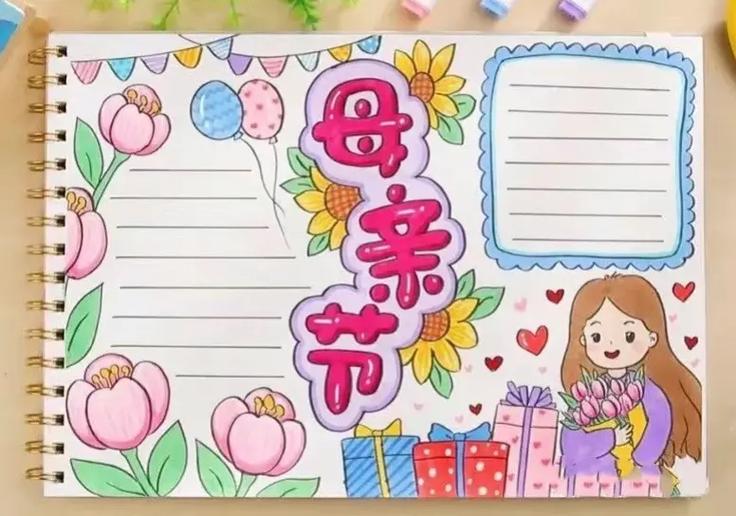 母亲节